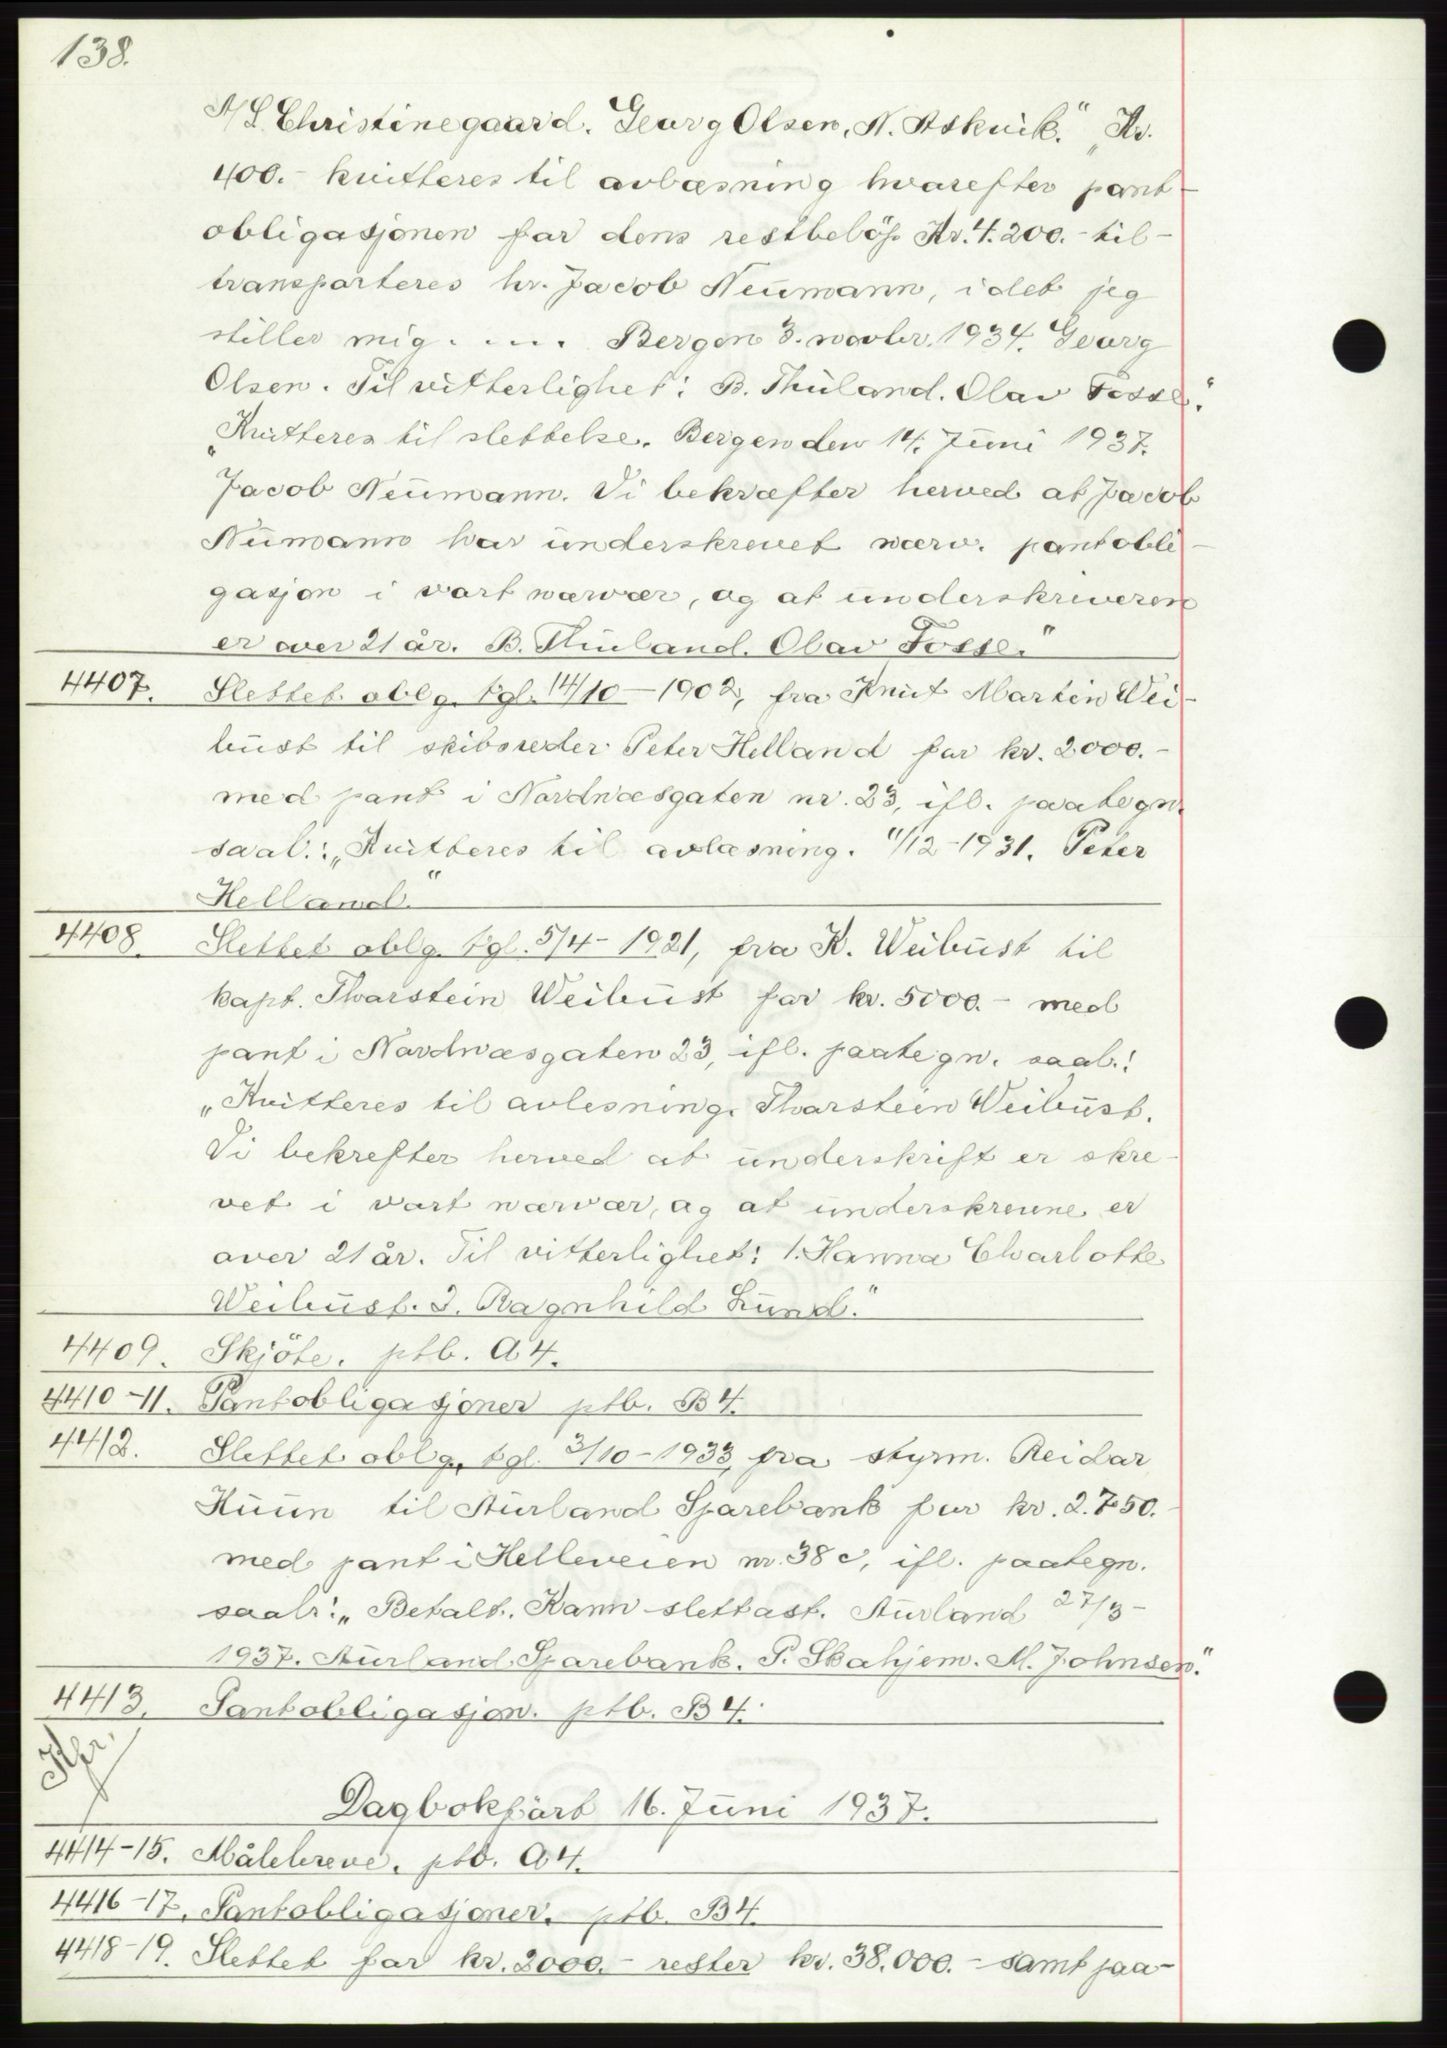 138.
A/L Christinegaard. Georg Olsen, N. Askvik." „Kr.
400.- kvitteres til avlæsning hvorefter pant-
obligasjonen for dens restbelöp Kr. 4.200.- til-
transporteres hr. Jacob Neumann, idet jeg
stiller mig. ... Bergen 3. novbr. 1934. Georg
Olsen. Til vitterlighet: B. Thuland. Olav Fosse."
„Kvitteres til slettelse. Bergen den 14. Juni 1937.
Jacob Neumann. Vi bekræfter herved at Jacob
Numann har underskrevet nærv. pantobli-
gasjon i vort nærvær, og at underskriveren
er over 21 år. B. Thuland. Olav Fosse."
4407. Slettet oblg. tgl. 14/10-1902, fra Knut Martin Wei-
bust til skibsreder Peter Helland for kr. 2000.-
med pant i Nordnæsgaten nr. 23, ifl. paategn.
saal.: „Kvitteres til avlæsning. 11/12-1931. Peter
Helland."
4408. Slettet oblg. tgl. 5/4-1921, fra K. Weibust til
kapt. Thorstein Weibust for kr. 5000.- med
pant i Nordnæsgaten 23, ifl. paategn. saal.:
„Kvitteres til avlesning. Thorstein Weibust.
Vi bekrefter herved at underskrift er skre-
vet i vort nærvær, og at underskrevne er
over 21 år. Til vitterlighet: 1. Hanna Charlotte
Weibust. 2. Ragnhild Lund."
4409. Skjöte. ptb. A4.
4410-11. Pantobligasjoner ptb. B4.
4412. Slettet oblg. tgl. 3/10-1933, fra styrm. Reidar
Huun til Aurland Sparebank for kr. 2.750.-
med pant i Helleveien nr. 38 c, ifl. paategn.
saal.: „Betalt. Kann slettast. Aurland 27/3-
1937. Aurland Sparebank. P. Skahjem. M. Johnsen."
4413. Pantobligasjon. ptb. B4.
Dagbokfört 16. Juni 1937.
4414-15. Målebreve. ptb. A4.
4416-17. Pantobligasjoner. ptb. B4.
4418-19. Slettet for kr. 2000.- rester kr. 38.000.- samt paa-